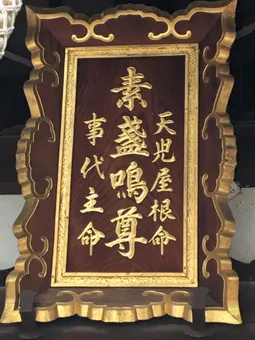 天児屋根命
素盞嗚尊
事代主命